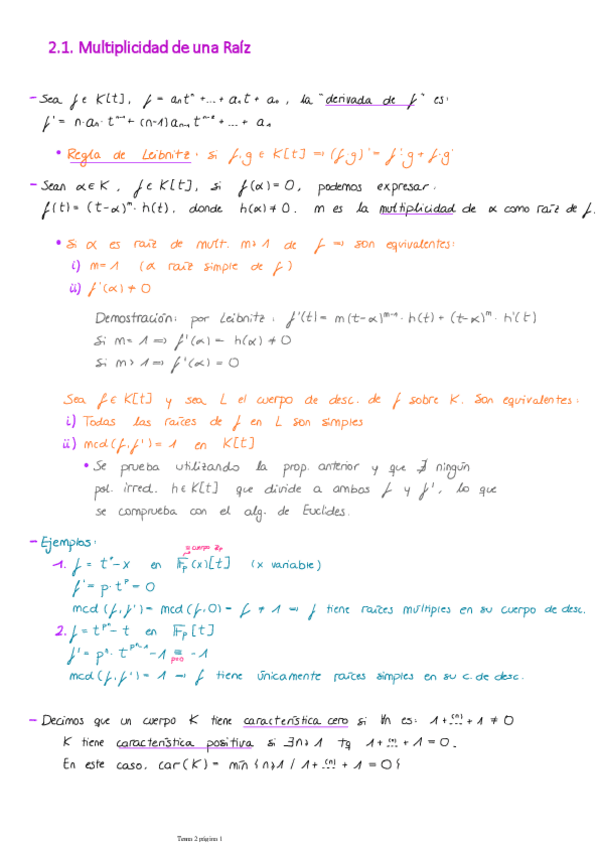 2.1. Multiplicidad de una Raíz
- Sea f ∈ K[t], f = aₙtⁿ + ... + a₁t + a₀, la "derivada de f" es:
f' = n·aₙ·tⁿ⁻¹ + (n-1)aₙ₋₁tⁿ⁻² + ... + a₁
• Regla de Leibnitz: si f,g ∈ K[t] ⟹ (f·g)' = f'·g + f·g'
- Sean α ∈ K, f ∈ K[t], si f(α) = 0, podemos expresar:
f(t) = (t-α)ᵐ · h(t), donde h(α) ≠ 0. m es la multiplicidad de α como raíz de f.
• Si α es raíz de mult. m≥1 de f ⟹ son equivalentes:
i) m = 1 (α raíz simple de f)
ii) f'(α) ≠ 0
Demostración: por Leibnitz: f'(t) = m(t-α)ᵐ⁻¹ · h(t) + (t-α)ᵐ · h'(t)
Si m = 1 ⟹ f'(α) = h(α) ≠ 0
Si m > 1 ⟹ f'(α) = 0
Sea f ∈ K[t] y sea L el cuerpo de desc. de f sobre K. Son equivalentes:
i) Todas las raíces de f en L son simples
ii) mcd(f,f') = 1 en K[t]
• Se prueba utilizando la prop. anterior y que ∄ ningún
pol. irred. h ∈ K[t] que divide a ambos f y f', lo que
se comprueba con el alg. de Euclides.
- Ejemplos:
cuerpo ℤₚ
1. f = tᵖ - x en 𝔽ₚ(x)[t] (x variable)
f' = p·tᵖ = 0
mcd(f,f') = mcd(f,0) = f ≠ 1 ⟹ f tiene raíces múltiples en su cuerpo de desc.
2. f = t^pⁿ - t en 𝔽ₚ[t]
f' = pⁿ · t^pⁿ⁻¹ - 1 = -1
p=0
mcd(f,f') = 1 ⟹ f tiene únicamente raíces simples en su c. de desc.
- Decimos que un cuerpo K tiene característica cero si ∀n es: 1 + .⁽ⁿ⁾. + 1 ≠ 0
K tiene característica positiva si ∃n≥1 tq 1 + .⁽ⁿ⁾. + 1 = 0.
En este caso, car(K) = mín {n≥1 / 1 + .⁽ⁿ⁾. + 1 = 0}
Tema 2 página 1